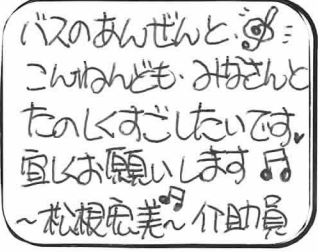 バスのあんぜんと、
こんねんども、みなさんと
たのしくすごしたいです。
宜しくお願いします
～松根宏美～ 介助員